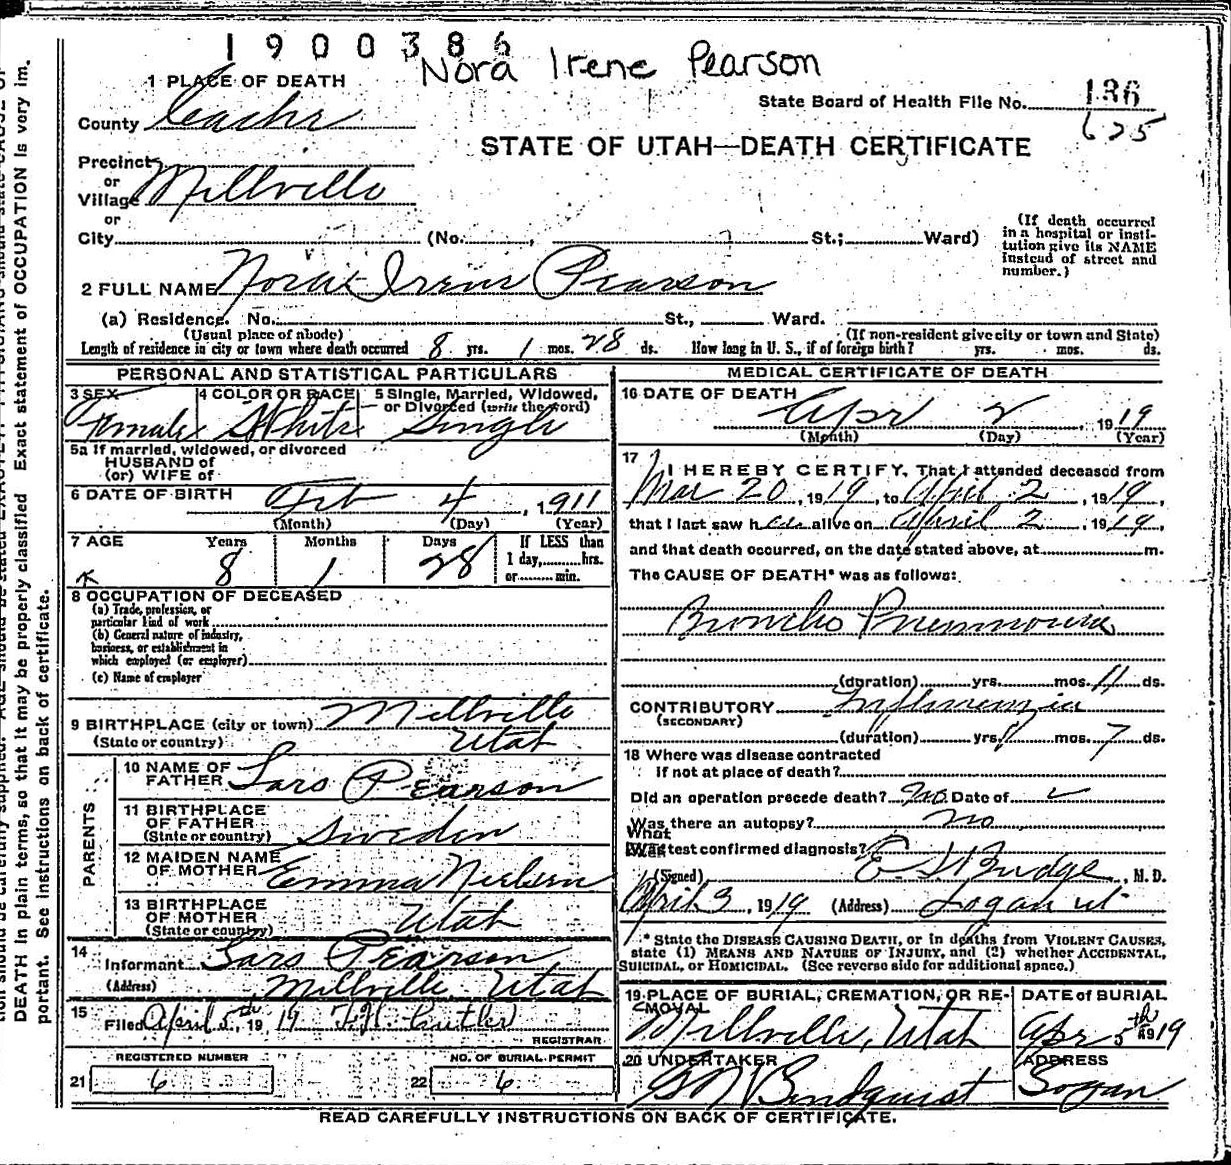 1900386
Nora Irene Pearson
1 PLACE OF DEATH
State Board of Health File No. 136
625
County Cache
STATE OF UTAH—DEATH CERTIFICATE
Precinct
or
Village Millville
or
City (No. , St.; Ward)
(If death occurred in a hospital or institution give its NAME instead of street and number.)
2 FULL NAME Nora Irene Pearson
(a) Residence. No. St., Ward.
(Usual place of abode) (If non-resident give city or town and State)
Length of residence in city or town where death occurred 8 yrs. 1 mos. 28 ds. How long in U. S., if of foreign birth? yrs. mos. ds.
PERSONAL AND STATISTICAL PARTICULARS
3 SEX 4 COLOR OR RACE 5 Single, Married, Widowed, or Divorced (write the word)
Female White Single
5a If married, widowed, or divorced
HUSBAND of
(or) WIFE of
6 DATE OF BIRTH Feb 4, 1911
(Month) (Day) (Year)
7 AGE Years Months Days If LESS than
1 day, hrs.
or min.
8 1 28
8 OCCUPATION OF DECEASED
(a) Trade, profession, or
particular kind of work
(b) General nature of industry,
business, or establishment in
which employed (or employer)
(c) Name of employer
9 BIRTHPLACE (city or town) Millville
(State or country) Utah
PARENTS
10 NAME OF
FATHER Lars Pearson
11 BIRTHPLACE
OF FATHER
(State or country) Sweden
12 MAIDEN NAME
OF MOTHER Emma Nielsen
13 BIRTHPLACE
OF MOTHER
(State or country) Utah
14 Informant Lars Pearson
(Address) Millville, Utah
15 Filed April 5th 1919 Cutler
REGISTRAR
REGISTERED NUMBER NO. OF BURIAL PERMIT
21 6 22 6
MEDICAL CERTIFICATE OF DEATH
16 DATE OF DEATH
Apr 2, 1919
(Month) (Day) (Year)
17 I HEREBY CERTIFY, That I attended deceased from
Mar 20, 1919, to April 2, 1919,
that I last saw her alive on April 2, 1919,
and that death occurred, on the date stated above, at m.
The CAUSE OF DEATH* was as follows:
Broncho Pneumonia
(duration) yrs. mos. 11 ds.
CONTRIBUTORY Influenzia
(SECONDARY)
(duration) yrs. mos. 7 ds.
18 Where was disease contracted
If not at place of death?
Did an operation precede death? No Date of
Was there an autopsy? no
What test confirmed diagnosis?
(Signed) E S Budge, M. D.
April 3, 1919 (Address) Logan ut
* State the DISEASE CAUSING DEATH, or in deaths from VIOLENT CAUSES,
state (1) MEANS AND NATURE OF INJURY, and (2) whether ACCIDENTAL,
SUICIDAL, or HOMICIDAL. (See reverse side for additional space.)
19 PLACE OF BURIAL, CREMATION, OR REMOVAL DATE of BURIAL
Millville, Utah Apr 5th 1919
20 UNDERTAKER ADDRESS
Lindquist Logan
READ CAREFULLY INSTRUCTIONS ON BACK OF CERTIFICATE.
Exact statement of OCCUPATION is very im-
DEATH in plain terms, so that it may be properly classified.
portant. See instructions on back of certificate.